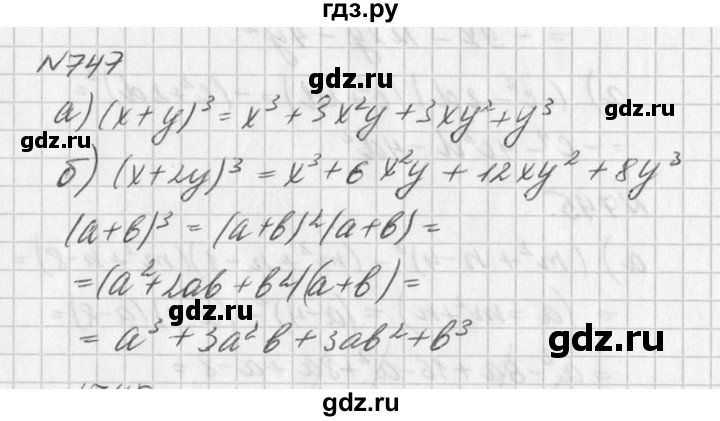 гдз.ру
N747
gdz.ru
а) (x+y)³ = x³ + 3x²y + 3xy² + y³
gdz.ru
gdz.ru
б) (x+2y)³ = x³ + 6x²y + 12xy² + 8y³
(a+b)³ = (a+b)²(a+b) =
= (a²+2ab+b²)(a+b) =
gdz.ru
= a³ + 3a²b + 3ab² + b³
gdz.ru
gdz.ru